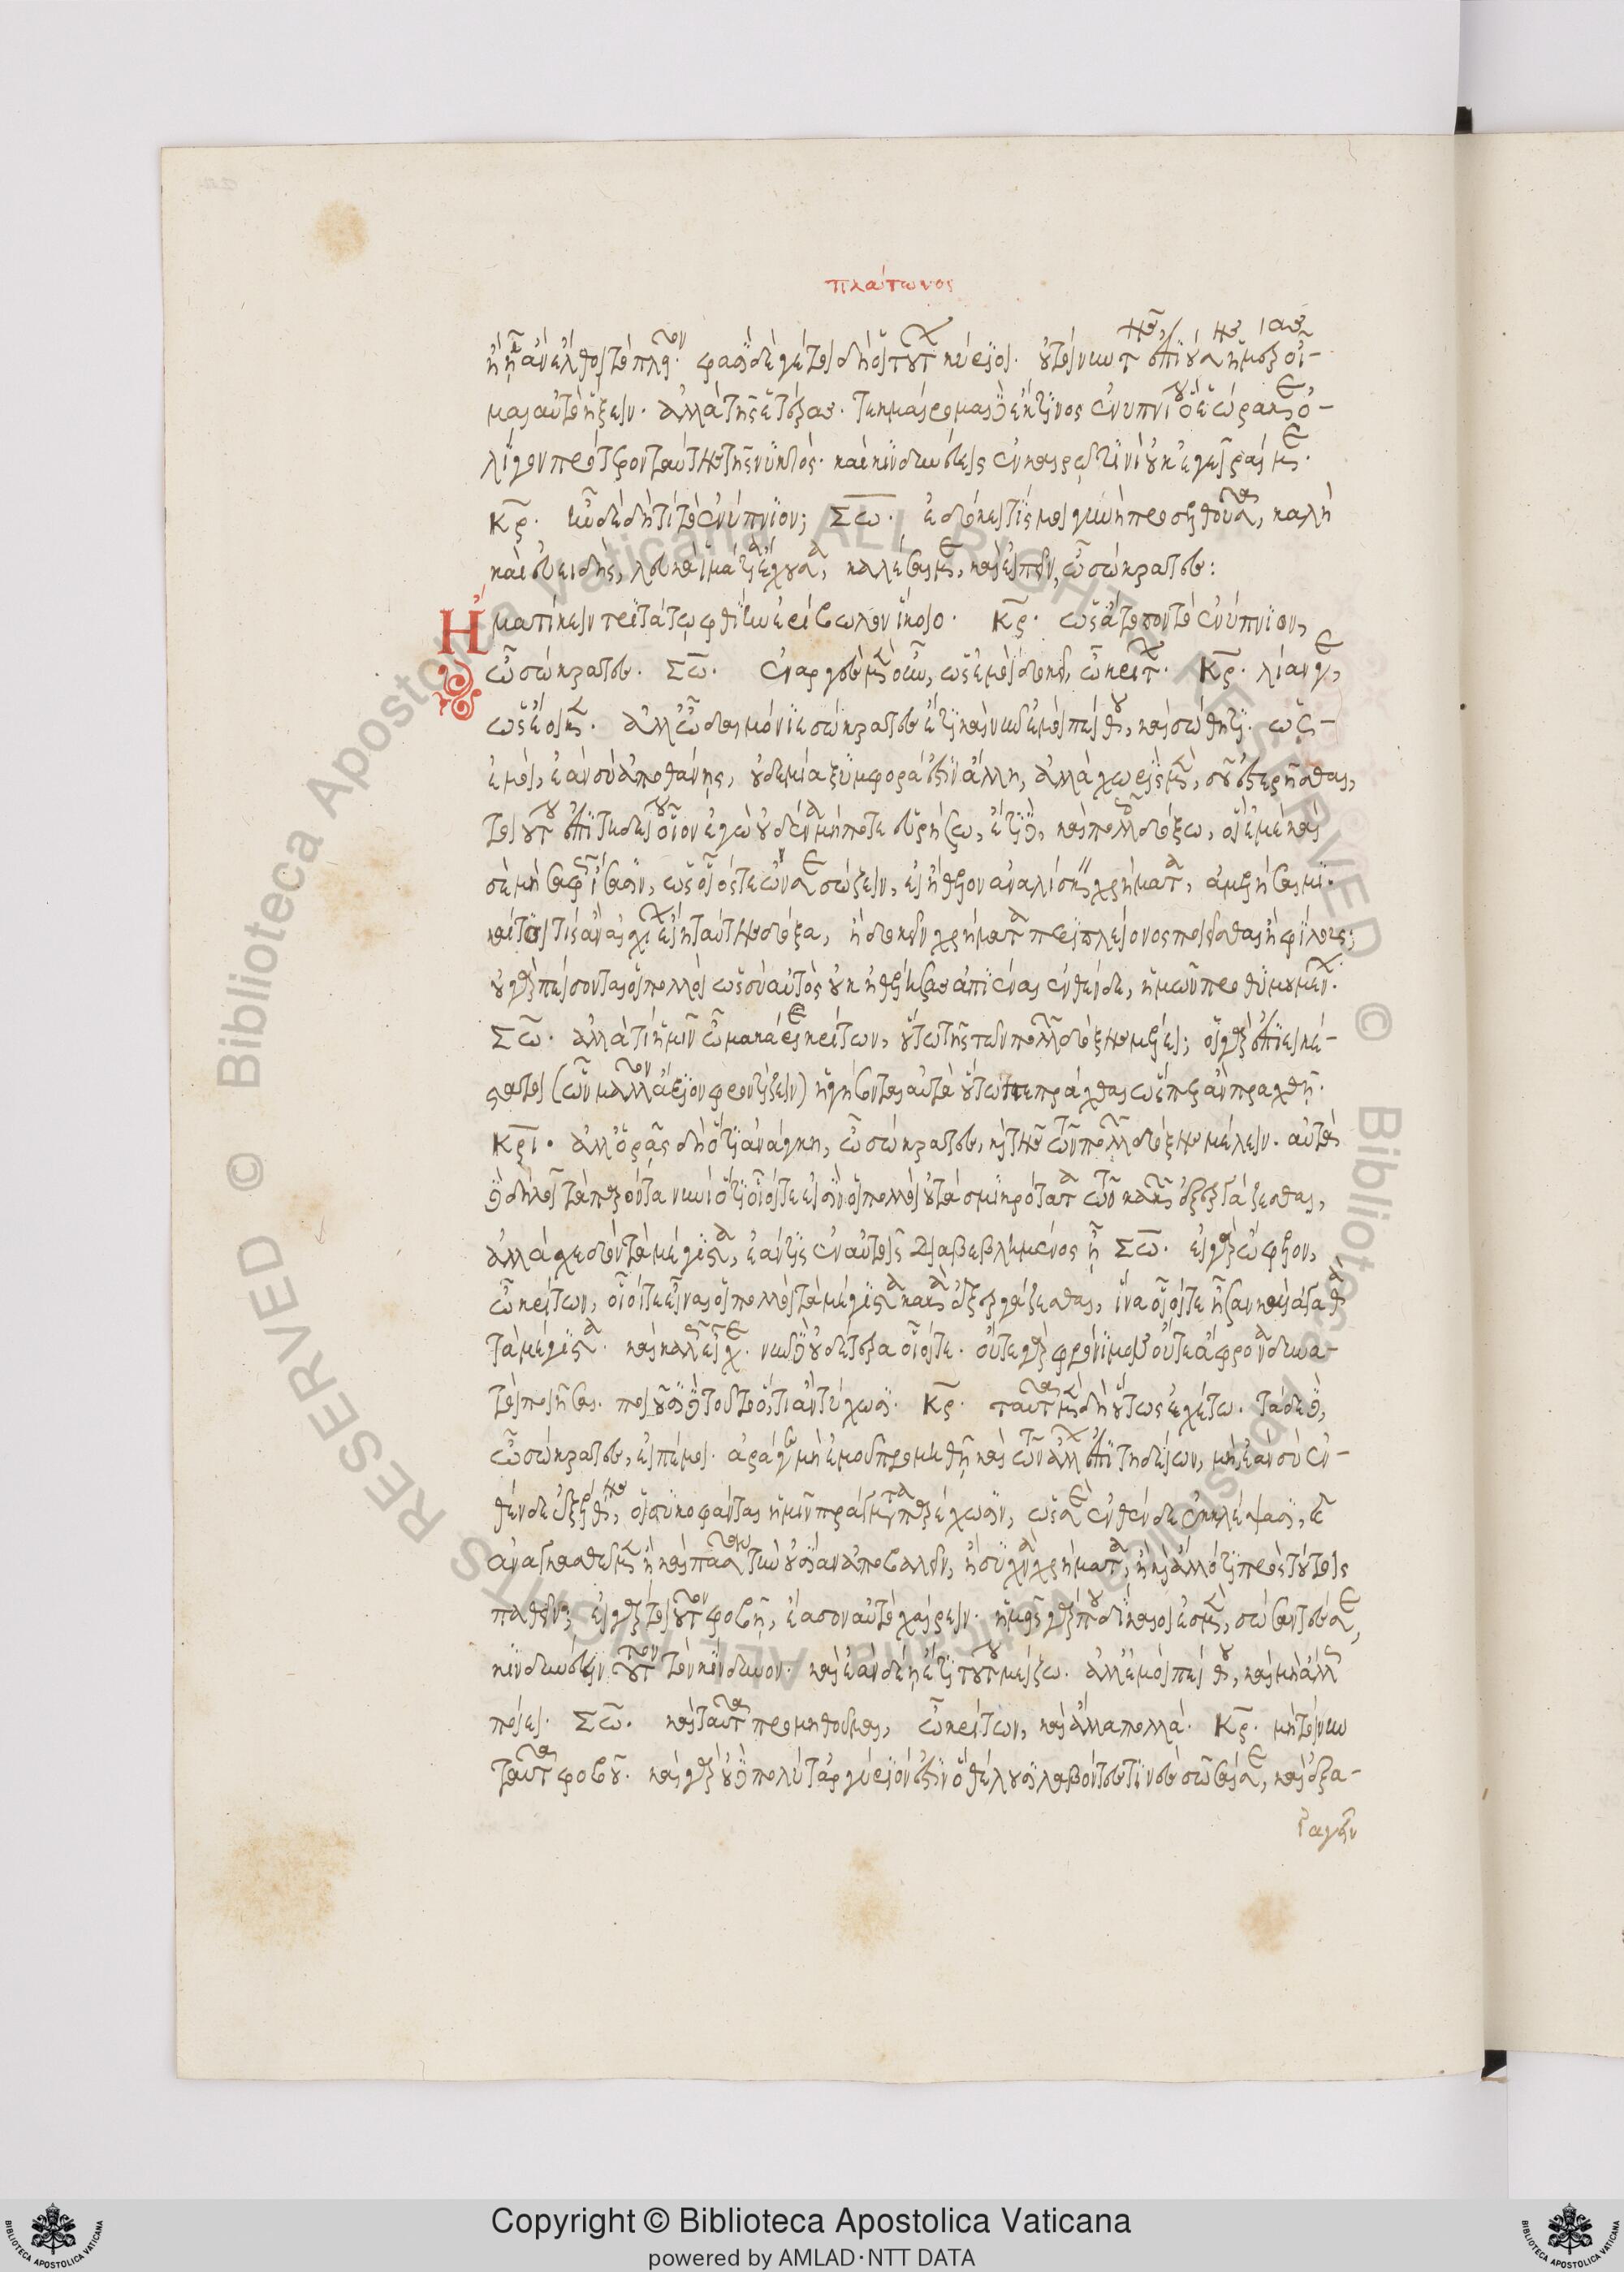 πλάτωνος
ἢ ᾗ ἂν ἔλθοι τὸ πλοῖον. φασὶ δέ γέ τοι δὴ οἱ τούτων κύριοι. οὐ τοίνυν τῆς ἐπιούσης ἡμέρας οἶ-
μαι αὐτὸ ἥξειν. ἀλλὰ τῆς ἑτέρας. τεκμαίρομαι δὲ ἔκ τινος ἐνυπνίου ὃ ἑώρακα ὀ-
λίγον πρότερον ταύτης τῆς νυκτός. καὶ κινδυνεύεις ἐν καιρῷ τινὶ οὐκ ἐγεῖραί με.
Κρ. ἦν δὲ δὴ τί τὸ ἐνύπνιον; Σω. ἐδόκει τίς μοι γυνὴ προσελθοῦσα, καλὴ
καὶ εὐειδής, λευκὰ ἱμάτια ἔχουσα, καλέσαι με, καὶ εἰπεῖν, ὦ σώκρατες:
Ἤματί κεν τριτάτῳ φθίην ἐρίβωλον ἵκοιο. Κρ. ὡς ἄτοπον τὸ ἐνύπνιον,
ὦ σώκρατες. Σω. ἐναργὲς μὲν οὖν, ὥς ἐμοὶ δοκεῖ, ὦ κρίτων. Κρ. λίαν γε,
ὡς ἔοικεν. ἀλλ' ὦ δαιμόνιε σώκρατες ἔτι καὶ νῦν ἐμοὶ πείθου, καὶ σώθητι. ὡς
ἐμοὶ, ἐὰν σὺ ἀποθάνῃς, οὐδεμία ξυμφορά ἐστιν ἄλλη, ἀλλὰ χωρὶς μὲν, σοῦ ἐστερῆσθαι,
τοιούτου ἐπιτηδείου οἷον ἐγὼ οὐδένα μήποτε εὑρήσω, ἔτι δὲ, καὶ πολλοῖς δόξω, οἳ ἐμὲ καὶ
σὲ μὴ σαφῶς ἴσασιν, ὡς οἷός τε ὤν σε σώζειν, εἰ ἤθελον ἀναλίσκειν χρήματα, ἀμελῆσαιμι.
καίτοι τίς ἂν αἰσχίων εἴη ταύτης δόξα, ἢ δοκεῖν χρήματα περὶ πλείονος ποιεῖσθαι ἢ φίλους;
οὐ γὰρ πείσονται οἱ πολλοὶ ὡς σὺ αὐτὸς οὐκ ἠθέλησας ἀπιέναι ἐνθένδε, ἡμῶν προθυμουμένων.
Σω. ἀλλὰ τί ἡμῖν ὦ μακάριε κρίτων, οὕτω τῆς τῶν πολλῶν δόξης μέλει; οἱ γὰρ ἐπιεικέ-
στατοι (ὧν μᾶλλον ἄξιον φροντίζειν) ἡγήσονται αὐτὰ οὕτω πεπράχθαι ὥσπερ ἂν πραχθῇ.
Κρι. ἀλλ' ὁρᾷς δὴ ὅτι ἀνάγκη, ὦ σώκρατες, καὶ τῆς τῶν πολλῶν δόξης μέλειν. αὐτὰ
δὲ δηλοῖ τὰ παρόντα νυνὶ ὅτι οἷοί τε εἰσὶν οἱ πολλοὶ οὐ τὰ σμικρότατα τῶν κακῶν ἐξεργάζεσθαι,
ἀλλὰ σχεδὸν τὰ μέγιστα, ἐάν τις ἐν αὐτοῖς διαβεβλημένος ᾖ Σω. εἰ γὰρ ὤφελον,
ὦ κρίτων, οἷοί τε εἶναι οἱ πολλοὶ τὰ μέγιστα κακὰ ἐξεργάζεσθαι, ἵνα οἷοί τε ἦσαν καὶ ἀγαθὰ
τὰ μέγιστα. καὶ καλῶς εἶχε. νῦν δὲ οὐδέτερα οἷοί τε. οὔτε γὰρ φρόνιμον οὔτε ἄφρονα δυνα-
τοὶ ποιῆσαι. ποιοῦσι δὲ τοῦτο ὅ, τι ἂν τύχωσι. Κρ. ταῦτα μὲν δὴ οὕτως ἐχέτω. τάδε δὲ,
ὦ σώκρατες, εἰπέ μοι. ἆρά γε μὴ ἐμοῦ προμηθῇ καὶ τῶν ἄλλων ἐπιτηδείων, μὴ ἐὰν σὺ ἐν-
θένδε ἐξέλθῃς, οἱ συκοφάνται ἡμῖν πράγματα παρέχωσιν, ὡς σε ἐνθένδε ἐκκλέψασι,
ἀναγκασθῶμεν ἢ καὶ πᾶσαν τὴν οὐσίαν ἀποβαλεῖν, ἢ συχνὰ χρήματα, ἢ καὶ ἄλλό τι πρὸς τούτοις
παθεῖν; εἰ γάρ τι τοιοῦτον φοβῇ, ἔασον αὐτὸ χαίρειν. ἡμεῖς γάρ που δίκαιοί ἐσμεν, σώσαντές σε,
κινδυνεύειν τοῦτον τὸν κίνδυνον. καὶ ἐὰν δέῃ ἔτι τούτου μείζω. ἀλλ' ἐμοὶ πείθου, καὶ μὴ ἄλλως
ποίει. Σω. καὶ ταῦτα προμηθοῦμαι, ὦ κρίτων, καὶ ἄλλα πολλά. Κρ. μὴ τοίνυν
ταῦτα φοβοῦ. καὶ γὰρ οὐδὲ πολὺ τἀργύριόν ἐστιν ὃ θέλουσι λαβόντες τινὲς σῶσαί σε, καὶ ἐξα-
γαγεῖν